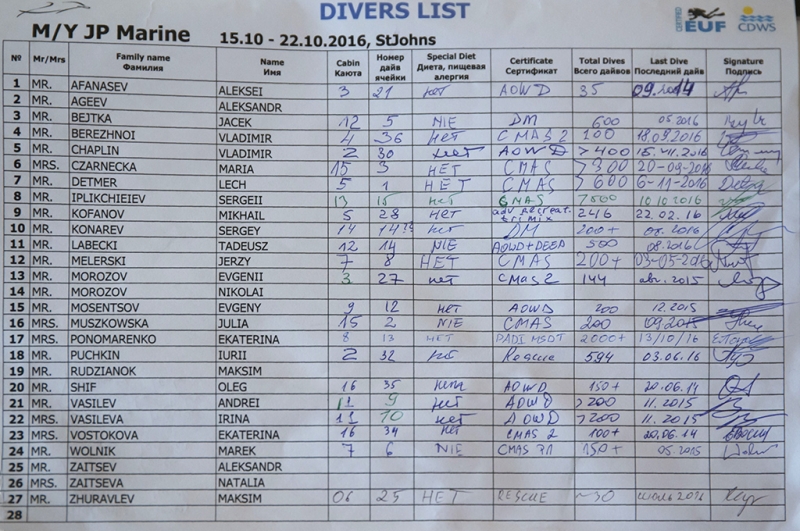 DIVERS LIST
M/Y JP Marine 15.10 - 22.10.2016, StJohns
CERTIFIED EUF CDWS
№ Mr/Mrs Family name Фамилия Name Имя Cabin Каюта Номер дайв ячейки Special Diet Диета, пищевая аллергия Certificate Сертификат Total Dives Всего дайвов Last Dive Последний дайв Signature Подпись
1 MR. AFANASEV ALEKSEI 3 21 нет AOWD 35
2 MR. AGEEV ALEKSANDR
3 MR. BEJTKA JACEK 12 5 NIE DM 600 05.2016
4 MR. BEREZHNOI VLADIMIR 4 36 НЕТ CMAS 2 100 18.09.2016
5 MR. CHAPLIN VLADIMIR 2 30 нет AOWD >400
6 MRS. CZARNECKA MARIA 15 3 НЕТ CMAS >300 20-09-2016
7 MR. DETMER LECH 5 1 НЕТ CMAS >600 6-11-2016
8 MR. IPLIKCHIEIEV SERGEII 13 15 нет CMAS 7500 10.10.2016
9 MR. KOFANOV MIKHAIL 5 28 нет adv recreat. trimix 246 22.02.16
10 MR. KONAREV SERGEY 14 нет DM 200+ 2016
11 MR. LABECKI TADEUSZ 12 14 NIE AOWD+DEEP 500 08.2016
12 MR. MELERSKI JERZY 7 8 НЕТ CMAS 200+ 03-05-2016
13 MR. MOROZOV EVGENII 3 27 нет CMAS 2 144 авг. 2015
14 MR. MOROZOV NIKOLAI
15 MR. MOSENTSOV EVGENY 9 12 нет AOWD 200 12.2015
16 MRS. MUSZKOWSKA JULIA 15 2 NIE CMAS 200 09.2015
17 MRS. PONOMARENKO EKATERINA 8 13 НЕТ PADI MSDT 2000+ 13/10/16
18 MR. PUCHKIN IURII 2 32 нет Rescue 594 03.06.16
19 MR. RUDZIANOK MAKSIM
20 MR. SHIF OLEG 16 35 нет AOWD 150+ 20.06.14
21 MR. VASILEV ANDREI 11 9 нет AOWD >200 11.2015
22 MRS. VASILEVA IRINA 11 10 нет AOWD >200 11.2015
23 MRS. VOSTOKOVA EKATERINA 16 34 нет CMAS 2 100+ 20.06.14
24 MR. WOLNIK MAREK 7 6 NIE CMAS 150+ 05.2015
25 MR. ZAITSEV ALEKSANDR
26 MRS. ZAITSEVA NATALIA
27 MR. ZHURAVLEV MAKSIM 06 25 НЕТ RESCUE ~30 июль 2016
28